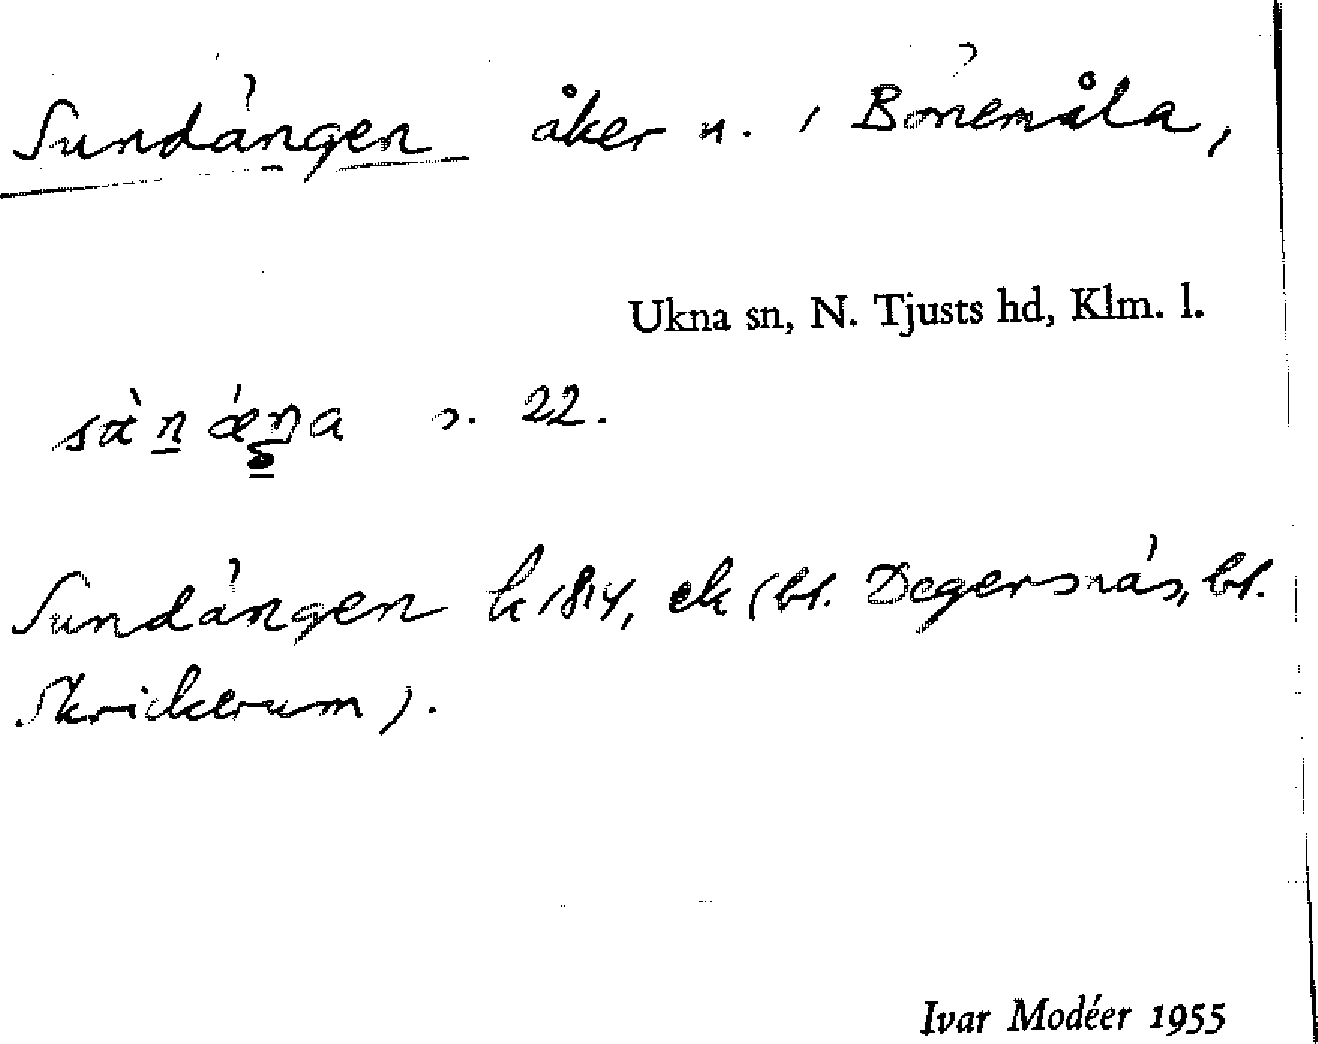 Sundängen åker n. i Bönemåla,
Ukna sn, N. Tjusts hd, Klm. l.
s. 22.
Sundängen k 1814, ek (bl. Degersnäs, bl.
Skrickerum).
Ivar Modéer 1955